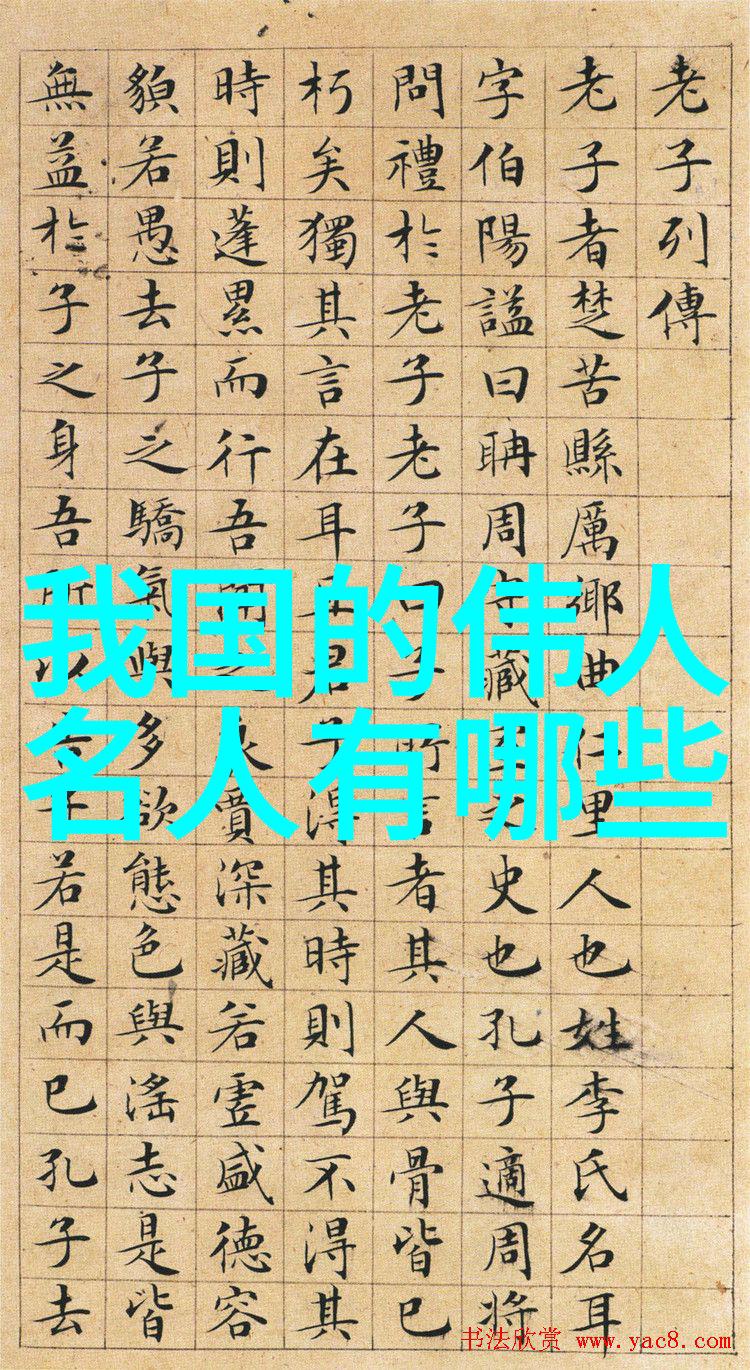 老子列傳
老子者楚苦縣厲鄉曲仁里人也姓李氏名耳
字伯陽諡曰聃周守藏室之史也孔子適周將
問禮於老子老子曰子所言者其人與骨皆已
朽矣獨其言在耳且君子得其時則駕不得其
時則蓬累而行吾聞之良賈深藏若虛盛德容
貌若愚去子之驕氣與多欲態色與淫志是皆
無益於子之身吾所以告子若是而已孔子去
我国的伟人
名人有哪些
书法欣赏 www.yac8.com